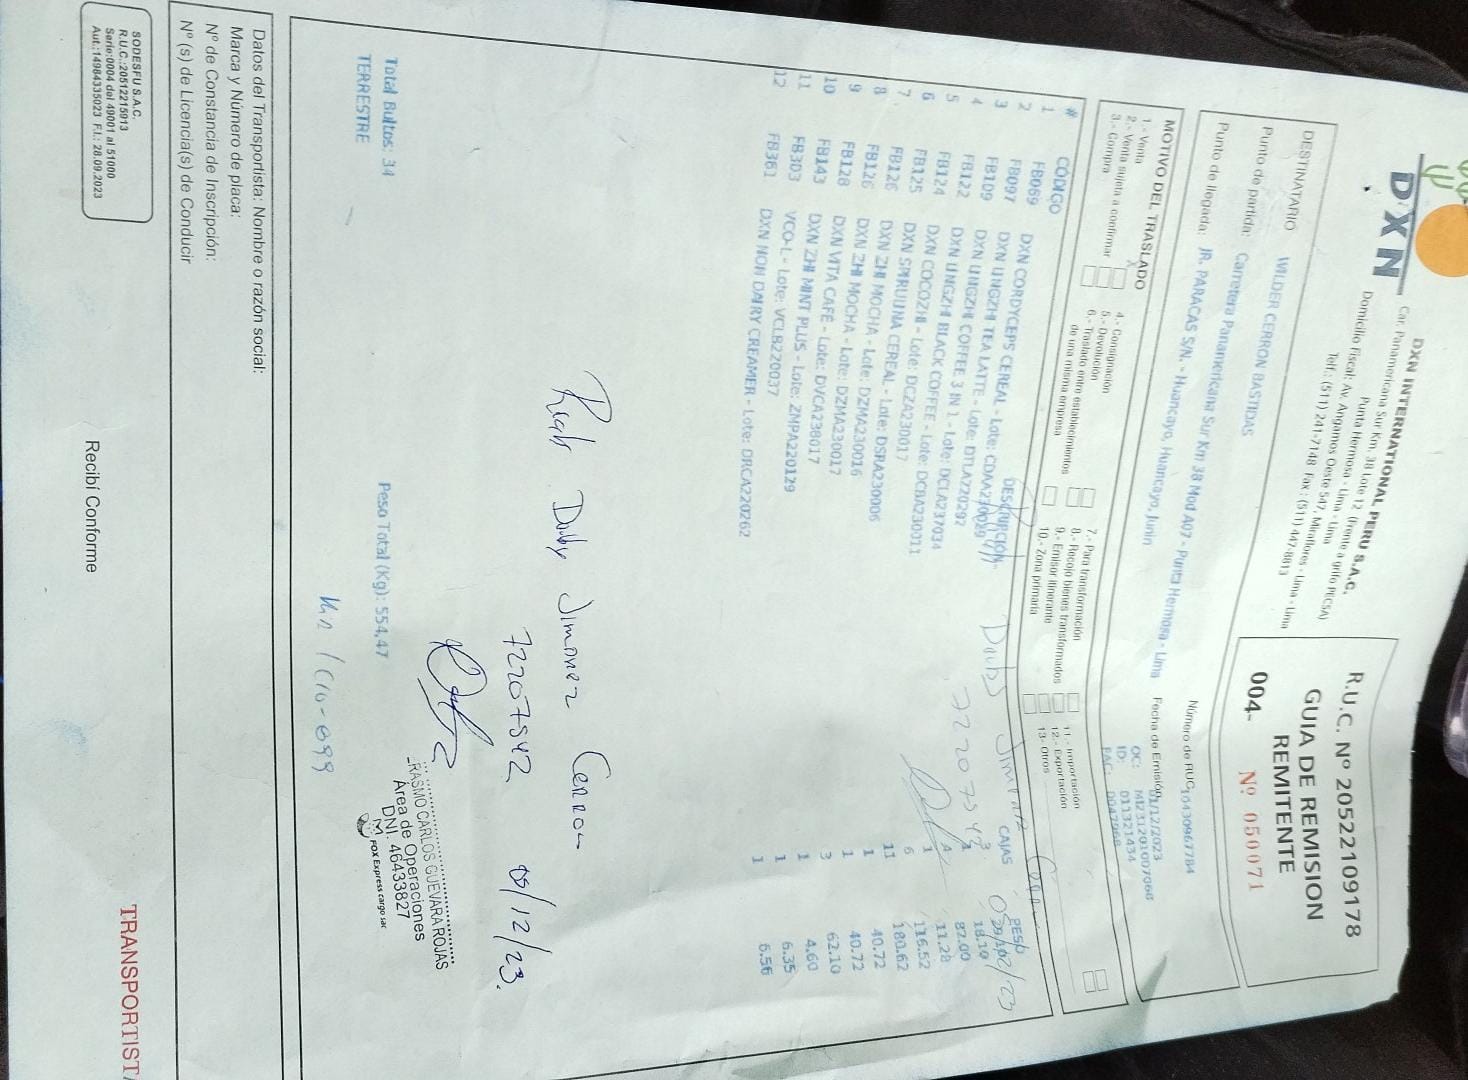 DXN
DXN INTERNATIONAL PERU S.A.C.
Car. Panamericana Sur Km. 38 Lote 12 (frente a grifo PECSA)
Punta Hermosa - Lima - Lima
Domicilio Fiscal: Av. Angamos Oeste 547, Miraflores - Lima - Lima
Telf.: (511) 241-7148 Fax: (511) 447-8813
R.U.C. Nº 20522109178
GUIA DE REMISION
REMITENTE
004- Nº 050071
DESTINATARIO WILDER CERRON BASTIDAS
Número de RUC 10430967784
Punto de partida: Carretera Panamericana Sur Km 38 Mod A07 - Punta Hermosa - Lima
Fecha de Emisión 01/12/2023
Punto de llegada: JR. PARACAS S/N. - Huancayo, Huancayo, Junin
OC: M1231201007066
ID: 011321434
FAC:
MOTIVO DEL TRASLADO
1.- Venta X
2.- Venta sujeta a confirmar
3.- Compra
4.- Consignación
5.- Devolución
6.- Traslado entre establecimientos
de una misma empresa
7.- Para transformación
8.- Recojo bienes transformados
9.- Emisor itinerante
10.- Zona primaria
11.- Importación
12.- Exportación
13- Otros
# CÓDIGO DESCRIPCIÓN CAJAS PESO
1 FB069 DXN CORDYCEPS CEREAL - Lote:
2 FB097 DXN LINGZHI TEA LATTE - Lote: DTLA220292 3 18.10
3 FB109 DXN LINGZHI COFFEE 3 IN 1 - Lote: DCLA237034
4 FB122 DXN LINGZHI BLACK COFFEE - Lote: DCBA230011
5 FB124 DXN COCOZHI - Lote: DCZA230017 11.28
6 FB125 DXN SPIRULINA CEREAL - Lote: DSRA230006 116.52
7 FB126 DXN ZHI MOCHA - Lote: DZMA230016 11 180.62
8 FB126 DXN ZHI MOCHA - Lote: DZMA230017 1 40.72
9 FB128 DXN VITA CAFÉ - Lote: DVCA238017 1 40.72
10 FB143 DXN ZHI MINT PLUS - Lote: ZMPA220129 3 62.10
11 FB303 VCO-L - Lote: VCLB220037 1 4.60
12 FB361 DXN NON DAIRY CREAMER - Lote: DRCA220262 1 6.35
1 6.56
72207542
Jimenez Cerron
72207542 09/12/23.
Total Bultos: 34 Peso Total (Kg): 554.47
TERRESTRE
RASMO CARLOS GUEVARA ROJAS
Área de Operaciones
DNI. 46433827
FOX Express cargo sac
Datos del Transportista: Nombre o razón social:
Marca y Número de placa:
Nº de Constancia de Inscripción:
Nº (s) de Licencia(s) de Conducir
SODESFU S.A.C.
R.U.C.:20512215913
Serie:0004 del 49001 al 51000
Aut.:14984335023 F.I.: 28.09.2023
Recibí Conforme
TRANSPORTISTA